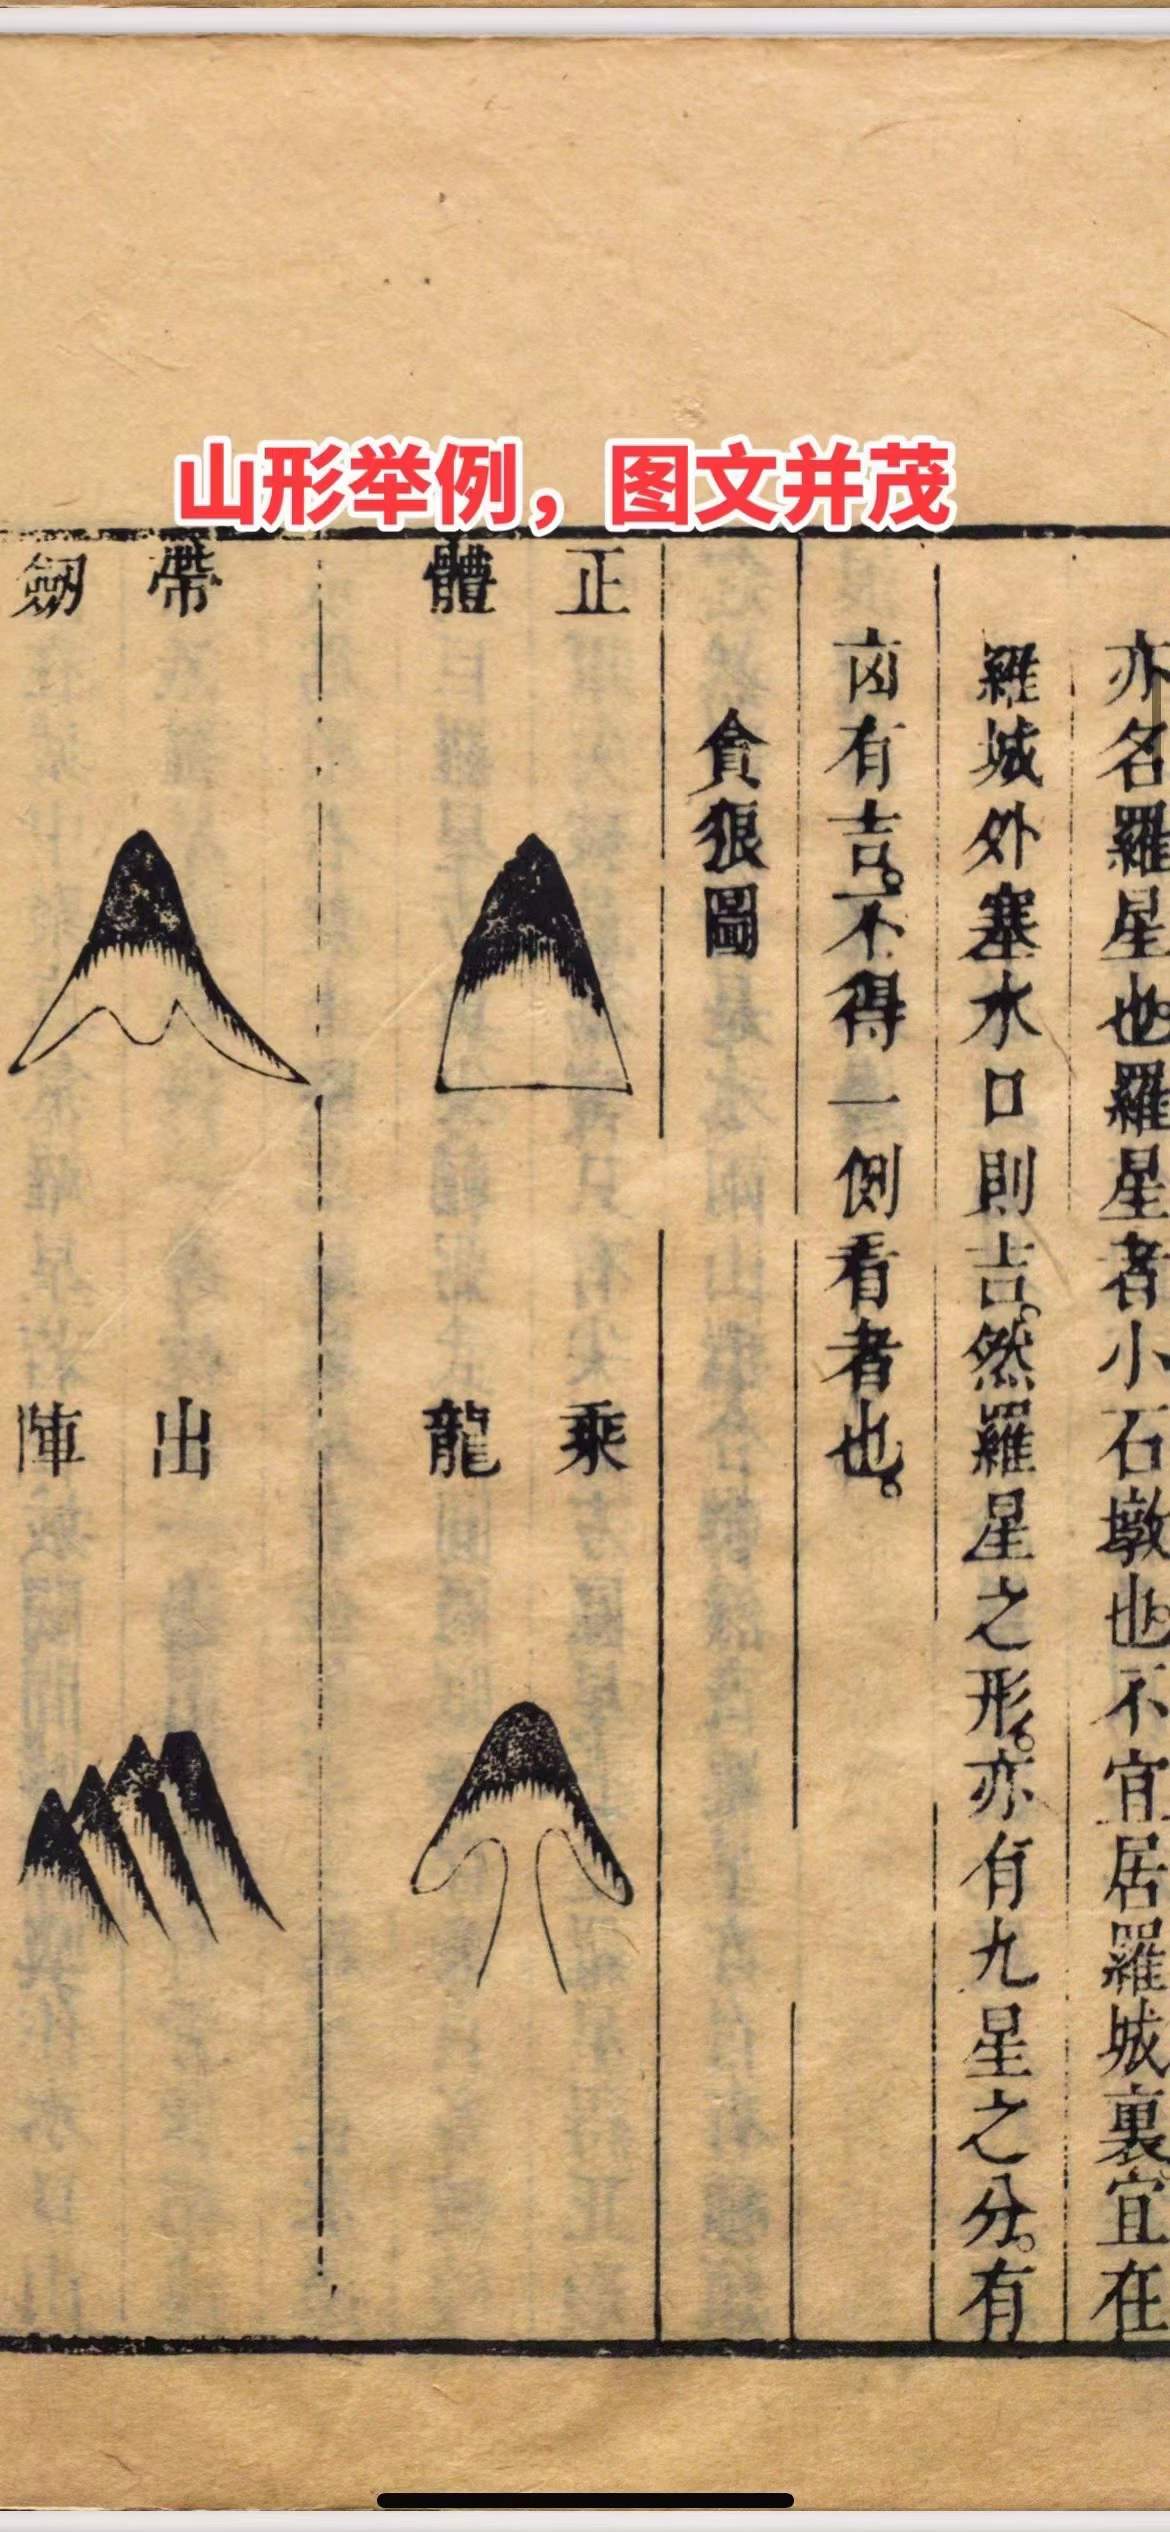 山形举例，图文并茂
亦名羅星也。羅星者小石墩也。不宜居羅城裏宜在
羅城外塞水口則吉。然羅星之形。亦有九星之分。有
凶有吉。不得一側看者也。
貪狼圖
正體
乘龍
帶劒
出陣